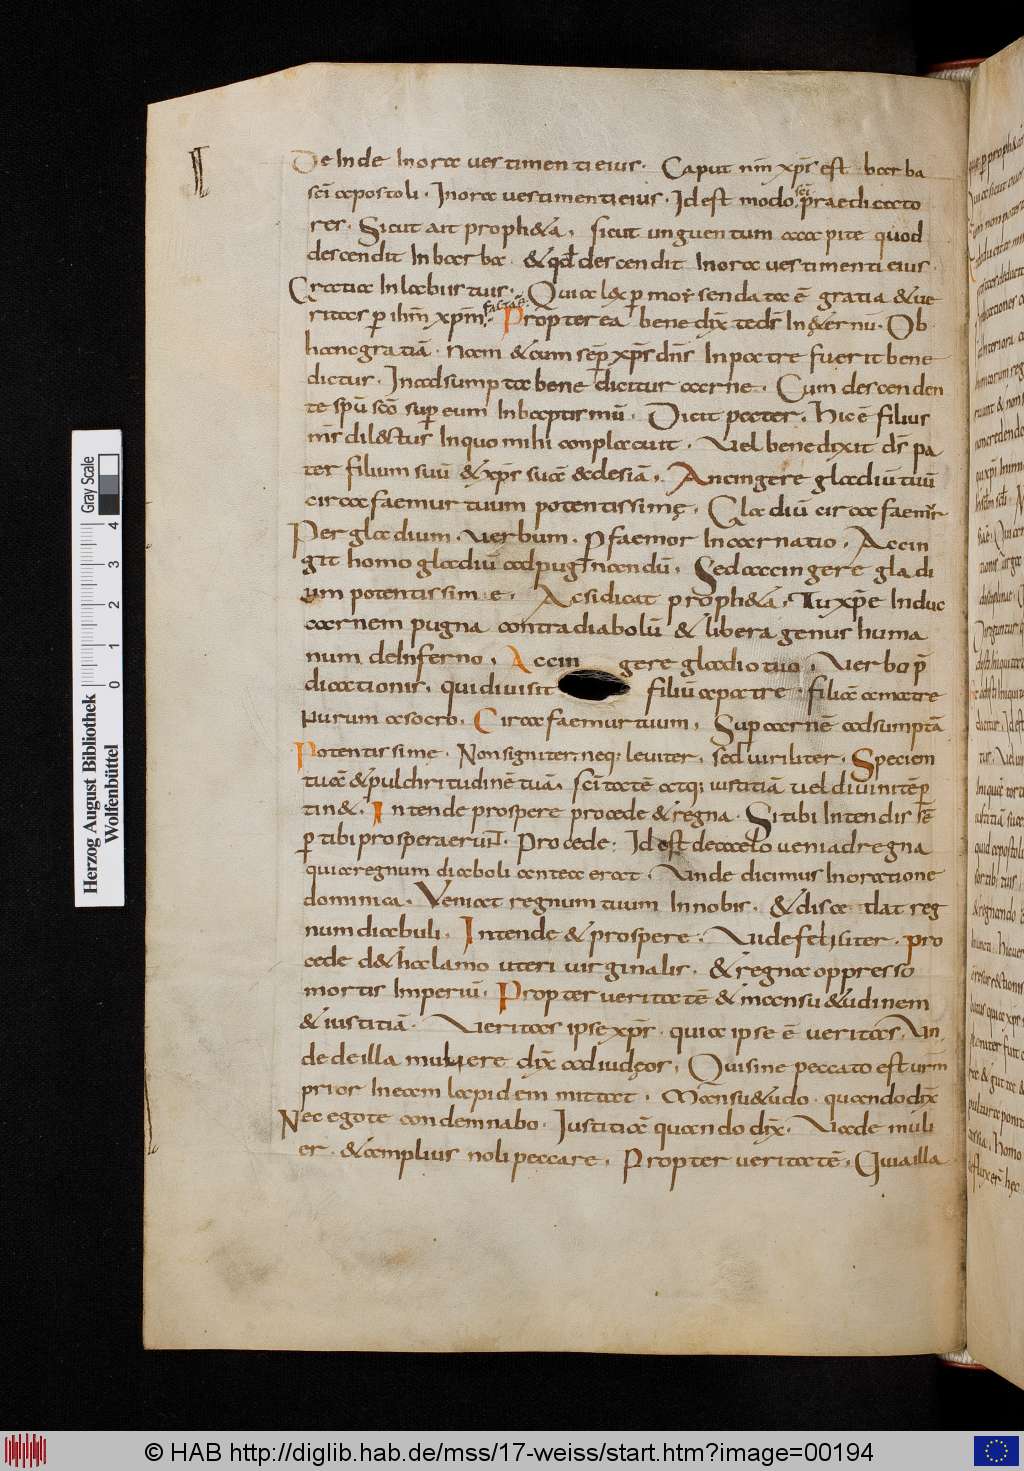 De Inde Inora vestimenti eius. Caput nrm xps est barba
sci apostoli. Inora vestimenti eius. Id est modo sci praedicato
res. Sicut ait propheta, sicut unguentum accipite quod
descendit In barba & qd descendit Inora vestimenti eius.
Gratia In labiis tuis. Quia lex per morsen data ē gratia & ue
ritas p ihm xpm facta ē. Propterea benedix te ds In &ernū. Ob
hanc gratiā. Nam & cum sep xps dns In patre fuerit bene
dictus. In adsumpta benedicitur carne. Cum descenden
te spū scō sup eum In baptismū. Dicit pater. Hic ē filius
ms dilectus In quo mihi conplacuit. Uel benedixit ds pa
ter filium suū & xps suā & clesiā. Ancingere gladiū tuū
circa faemur tuum potentissime. Gladiū circa faemur
Per gladium. verbum. P faemor Incarnatio. Accin
git homo gladiū ad pugnandū. Sed accingere gladi
um potentissime. Ac si dicat propheta. Tu xpe Induc
carnem pugna contra diabolū & libera genus huma
num de Inferno. Accin gere gladio tuo. Verbo p
dicationis. qui divisit filiū a patre. filiā a matre
nurum a socro. Circa faemur tuum. Sup carnē adsumptā
Potentissime. Non signiter. neq; leviter. sed viriliter. Speciem
tuā & pulchritudinē tuā. scitatē atq; iustitiā vel divinitē p
tin&. Intende prospere procede & regna. Si tibi Intendis sē
p tibi prospera erunt. Procede: Id est de caelo veni ad regna
quia regnum diaboli antea erat. Unde dicimus In oratione
dominica. Veniat regnum tuum In nobis. & discedat reg
num diabuli. Intende & prospere. Videfeliciter. pro
cede de thalamo uteri virginalis. & regna oppresso
mortis Imperiū. Propter veritatē & mansu&udinem
& iustitiā. Veritas ipse xps. quia ipse ē veritas. Un
de de illa muliere dix ad iudeos, Qui sine peccato est urm
prior In eam lapidem mittat. Mansu&udo. quando dix
Nec ego te condemnabo. Iustitiā quando dix. Vade muli
er. & amplius noli peccare. Propter veritatē. Quia illa
Herzog August Bibliothek
Wolfenbüttel
Gray Scale
0 1 2 3 4
© HAB http://diglib.hab.de/mss/17-weiss/start.htm?image=00194